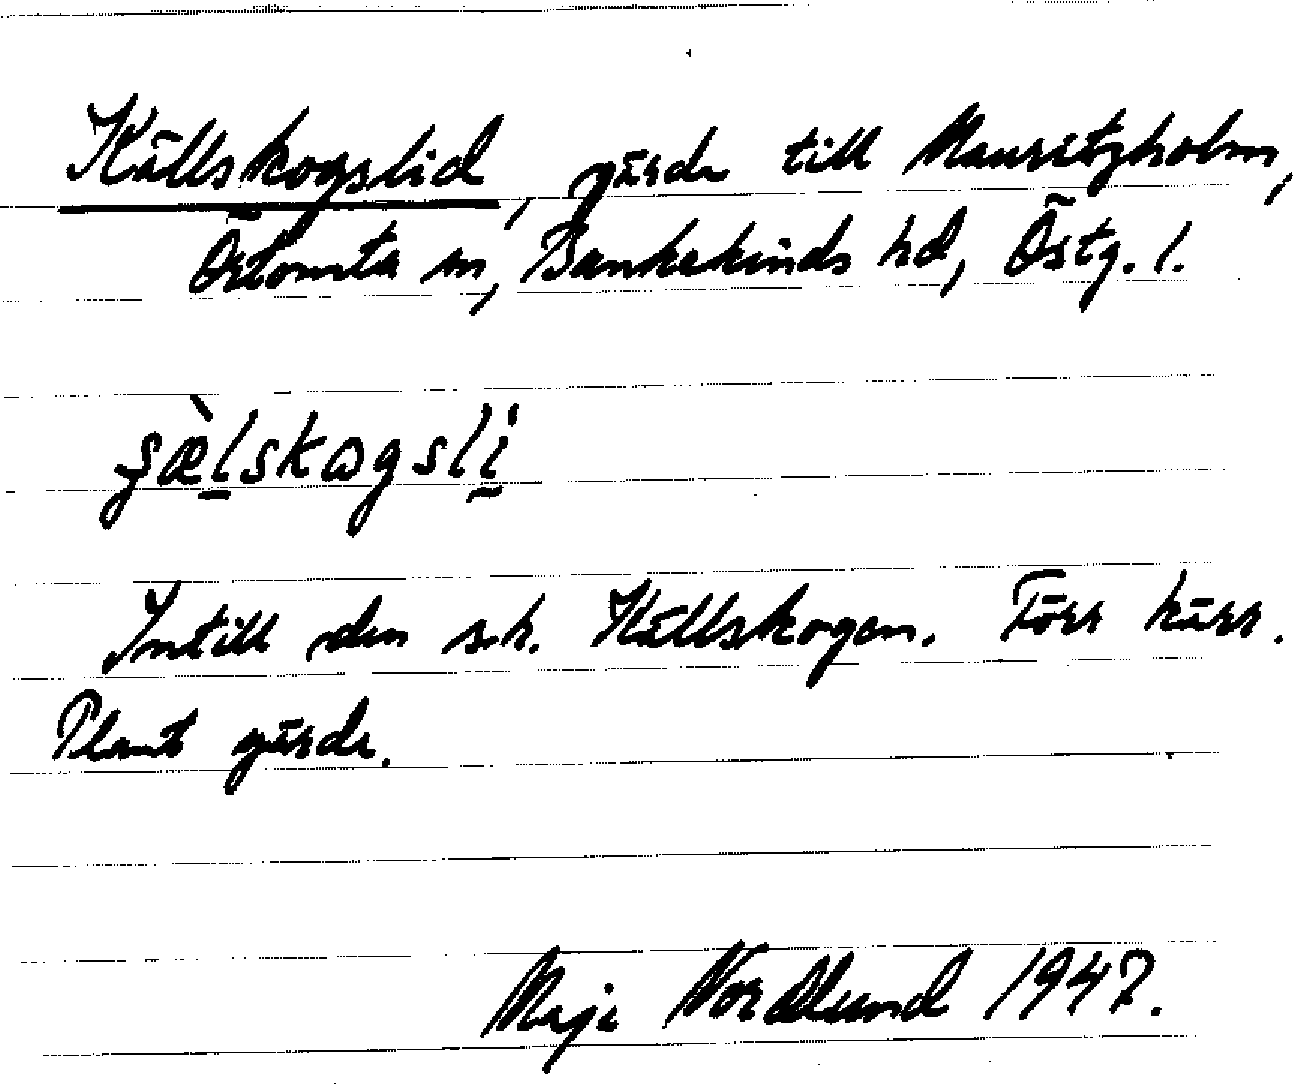 Källskogslid, gärde till Mauritzholm,
Örtomta sn, Bankekinds hd, Östg. l.
Intill den s.k. Källskogen. Förr kärr.
Plant gärde.
Maja Nordlund 1947.